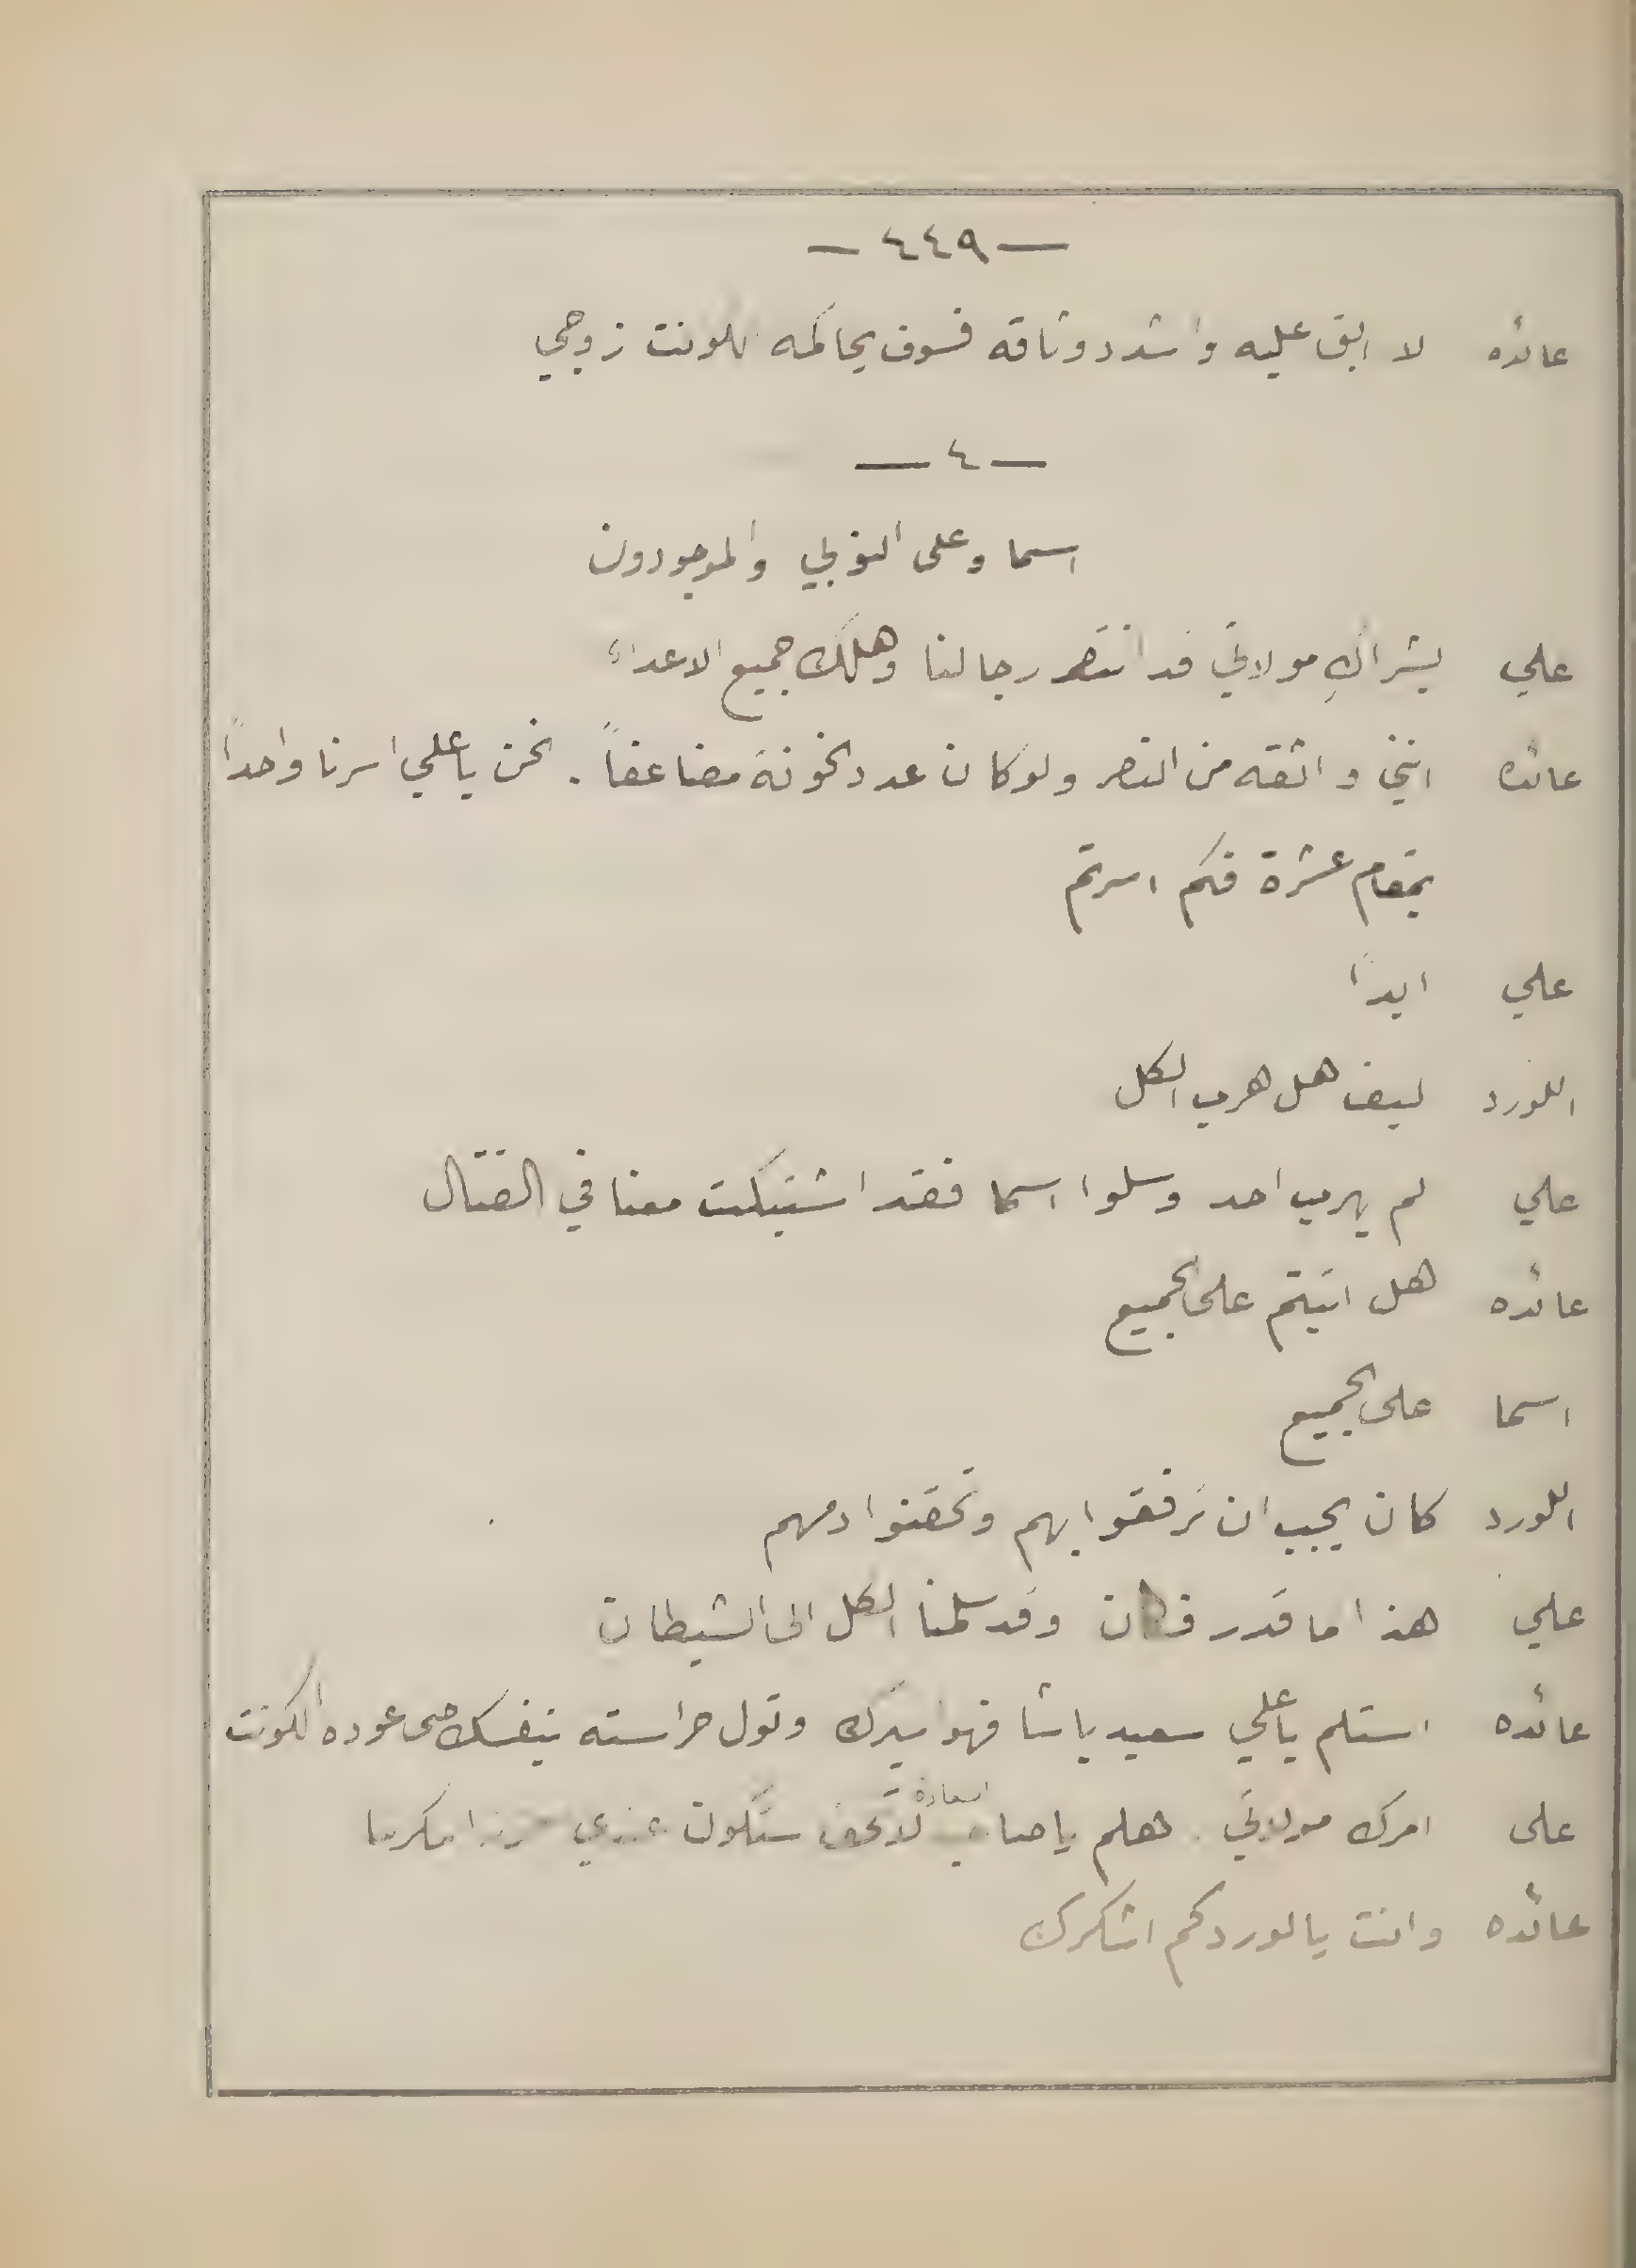 — ٤٤٩ —
عائده لا ابق عليه واشدد وثاقه فسوف يحاكمه الكونت زوجي
— ٤ —
اسما وعلى النوبي والموجودون
علي بشراكِ مولاتي قد انتصر رجالنا وهلك جميع الاعداء
عائده انني واثقه من النصر ولو كان عدد الخونة مضاعفاً . نحن يا علي اسرنا واحداً
بمقام عشرة فكم اسرتم
علي ابداً
اللورد كيف هل هرب الكل
علي لم يهرب احد وسلوا اسما فقد اشتبكت معنا في القتال
عائده هل اتيتم على الجميع
اسما على الجميع
اللورد كان يجب ان ترفقوا بهم وتحقنوا دمهم
علي هذا ما قدر فكان وقد سلمنا الكل الى الشيطان
عائده استلم يا علي سعيد باشا فهو اسيرك وتول حراسته بنفسك حتى عوده الكونت
على امرك مولاتي . هلم يا صاحب السعادة لا تخف ستكون عندي مكرما
عائده وانت يا لورد كم اشكرك